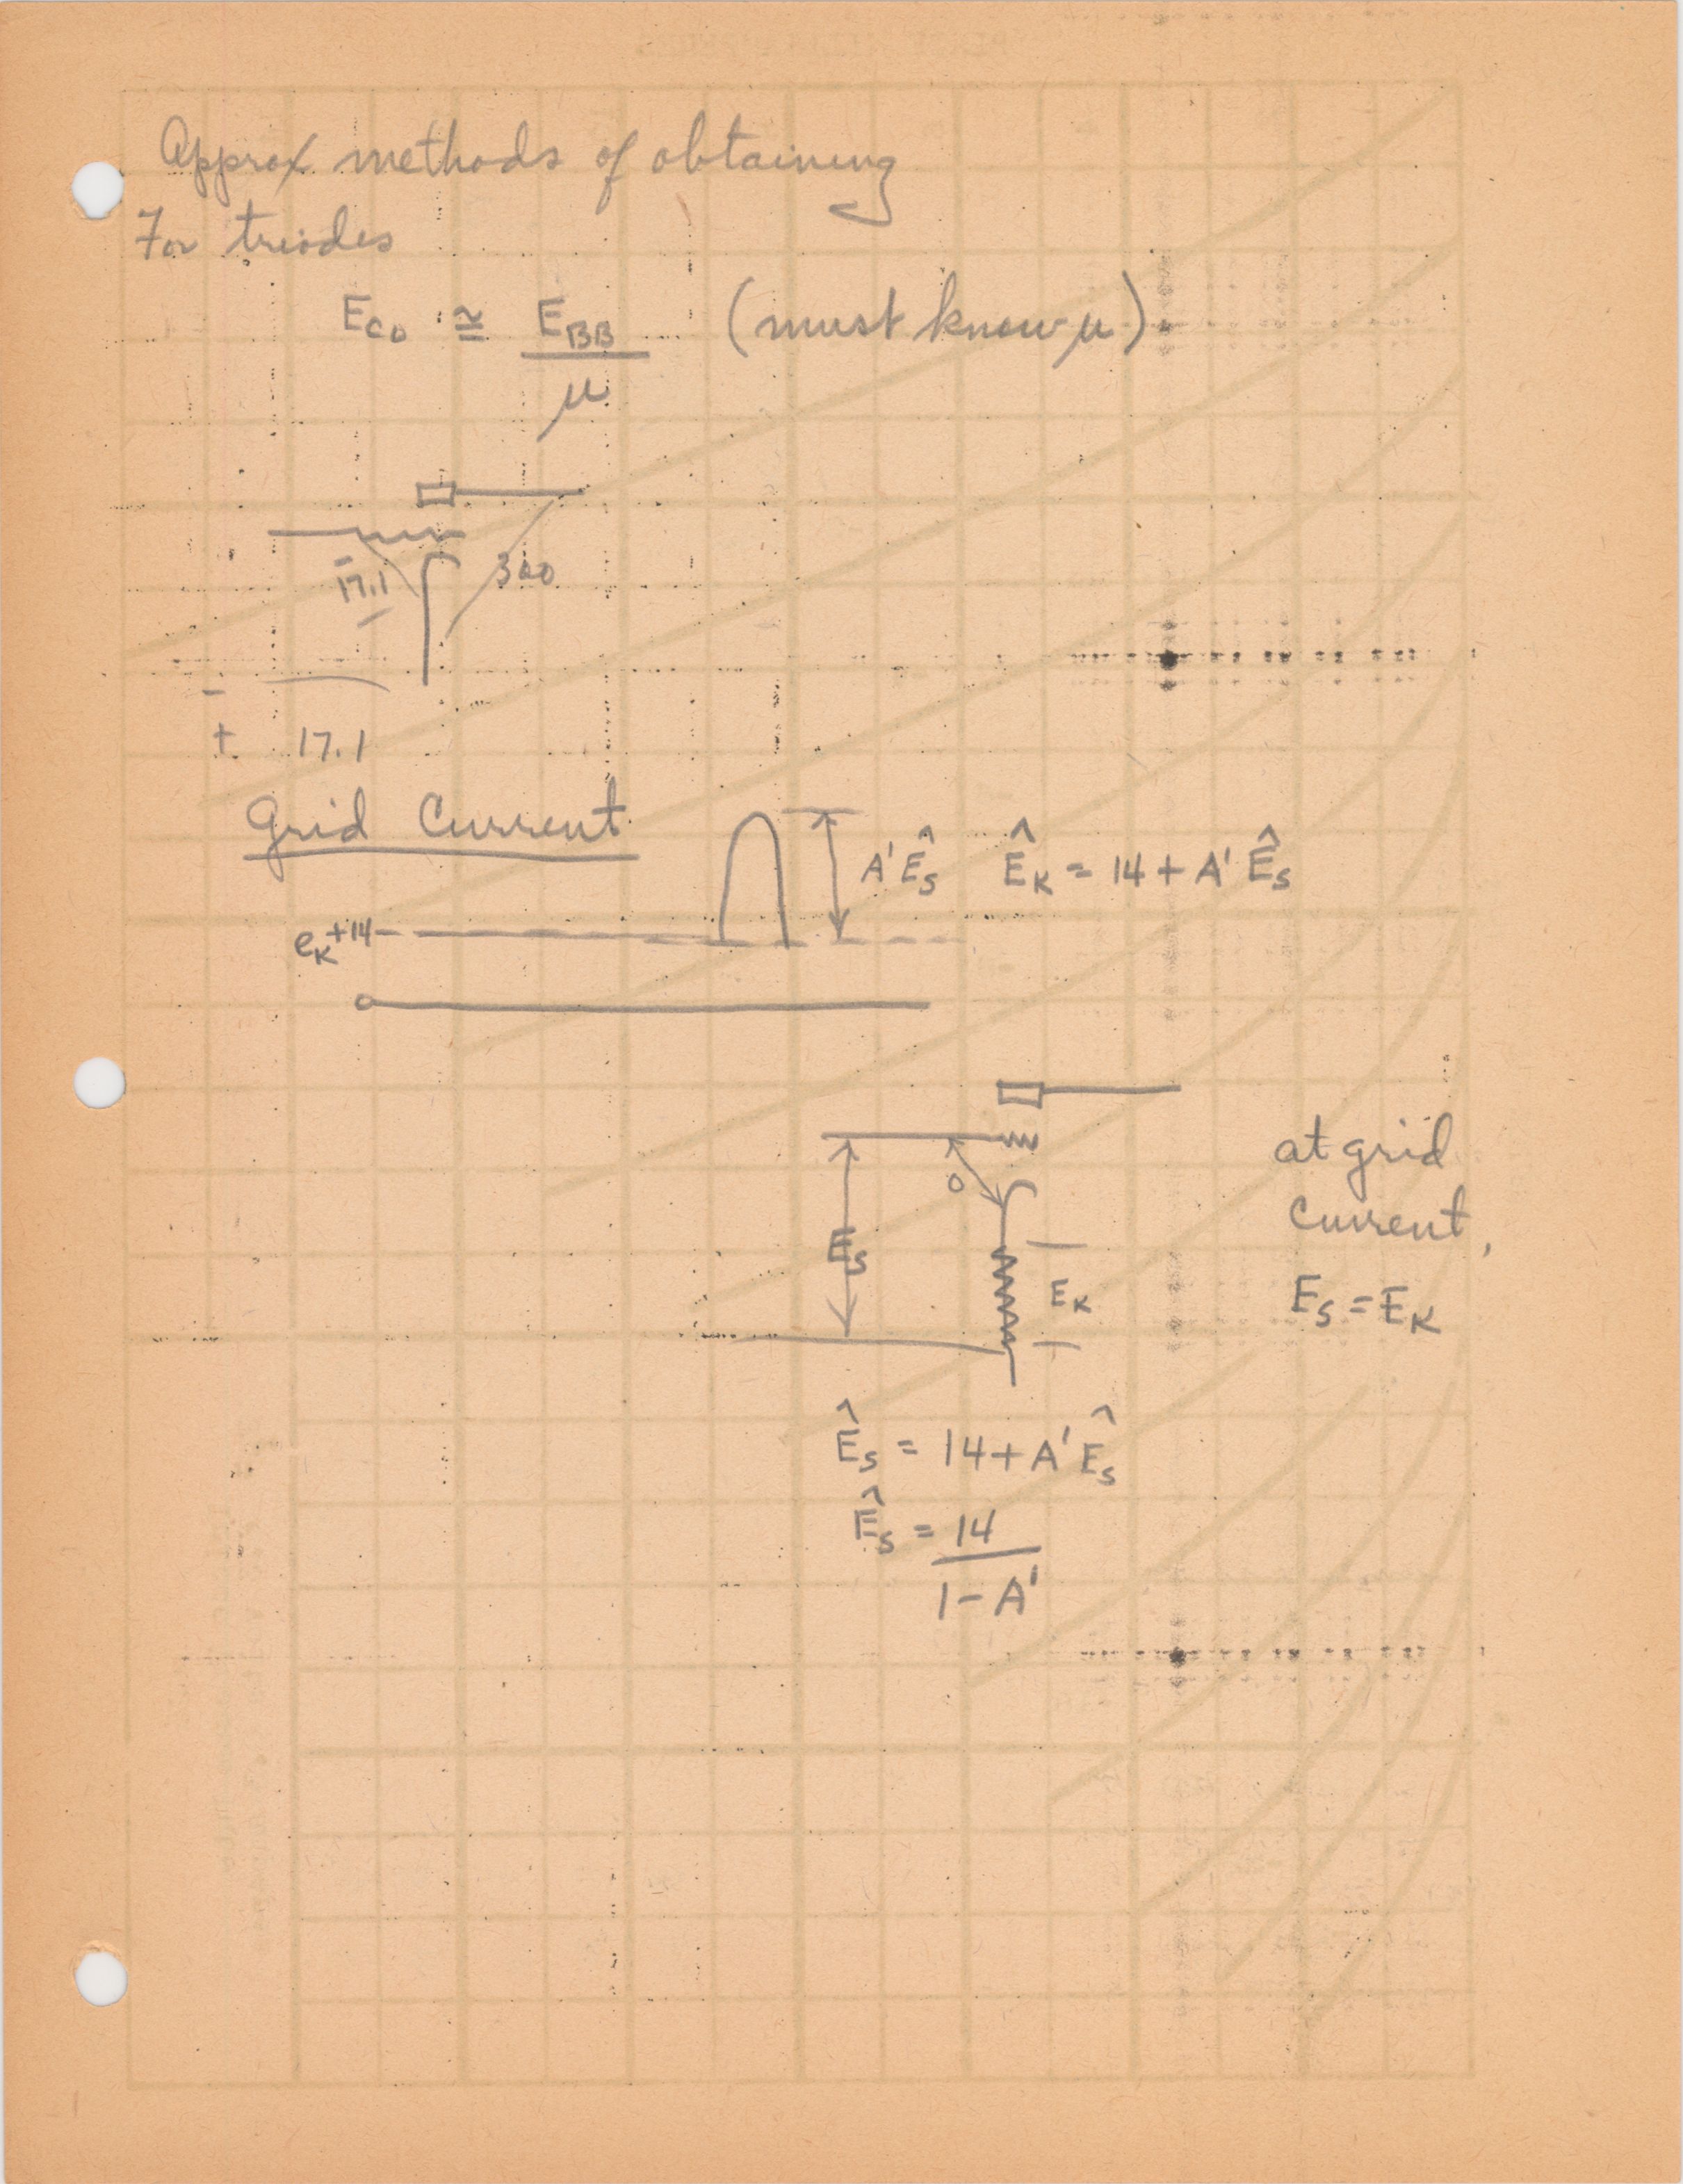 Approx methods of obtaining
For triodes
E_co ≅ E_BB / μ (must know μ)
-17.1 300
-
+ 17.1
Grid Current
A' Ê_s Ê_K = 14 + A' Ê_s
e_K +14
0
E_s
E_K
at grid
current,
E_s = E_K
Ê_s = 14 + A' Ê_s
Ê_s = 14 / 1 - A'